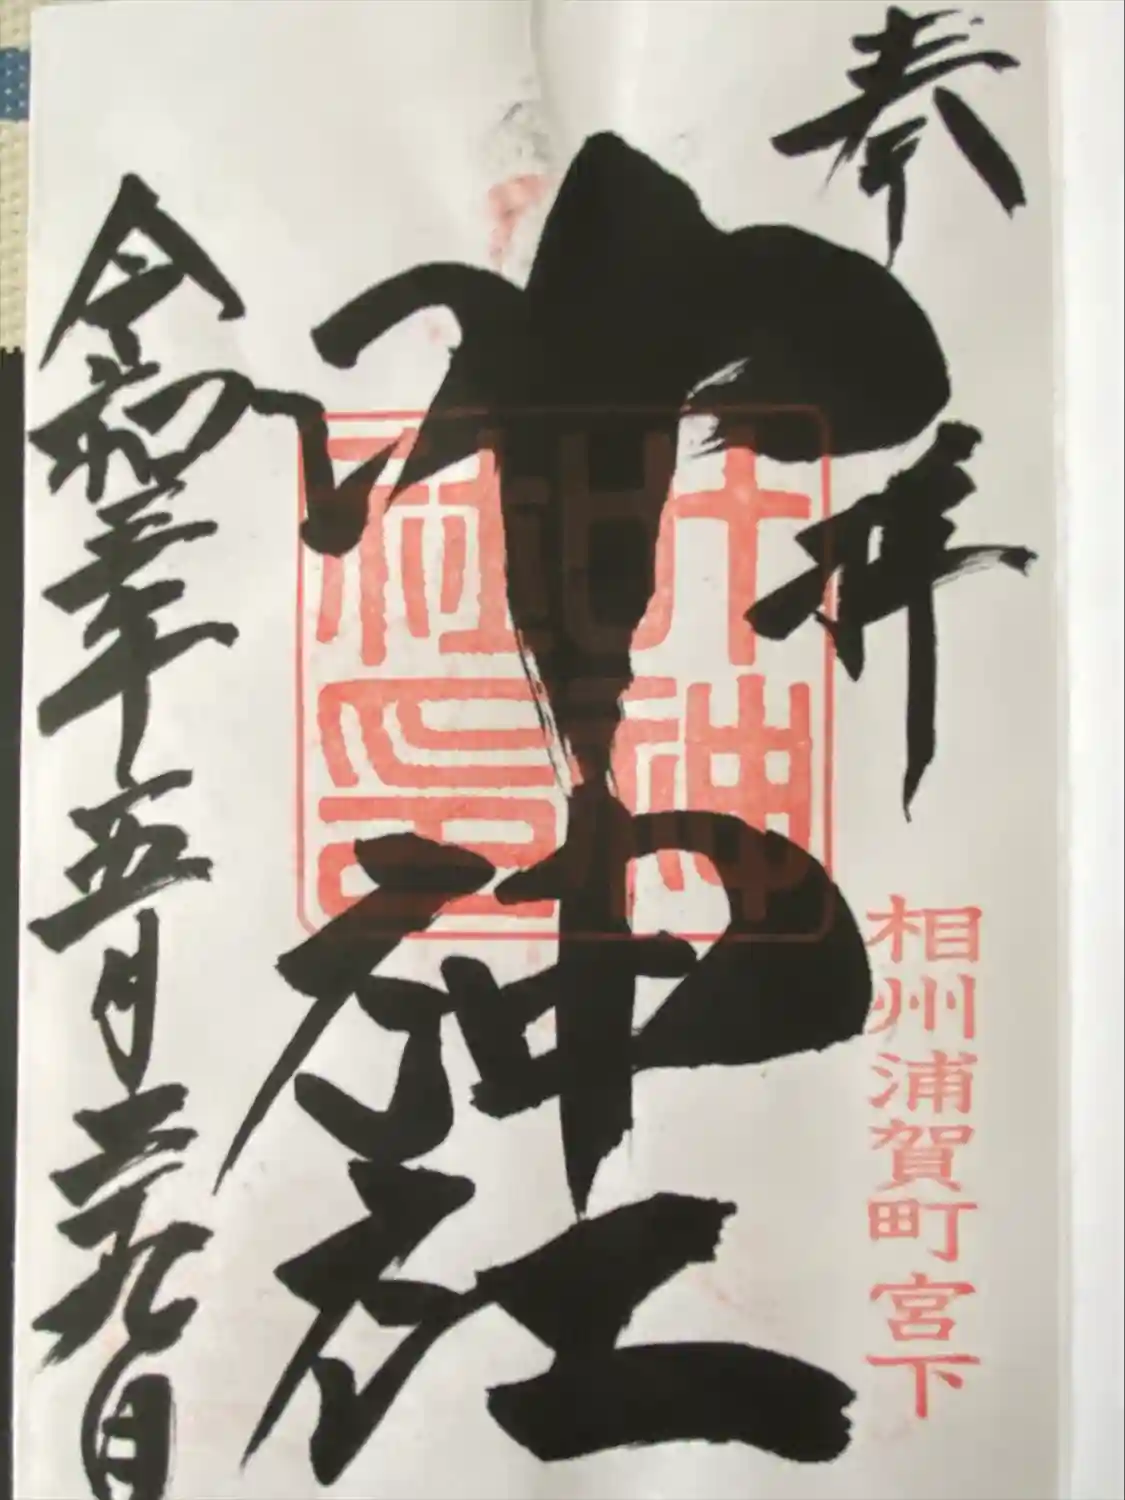 奉拝
相州浦賀町宮下
叶神社
叶神社印
令和三年五月二九日